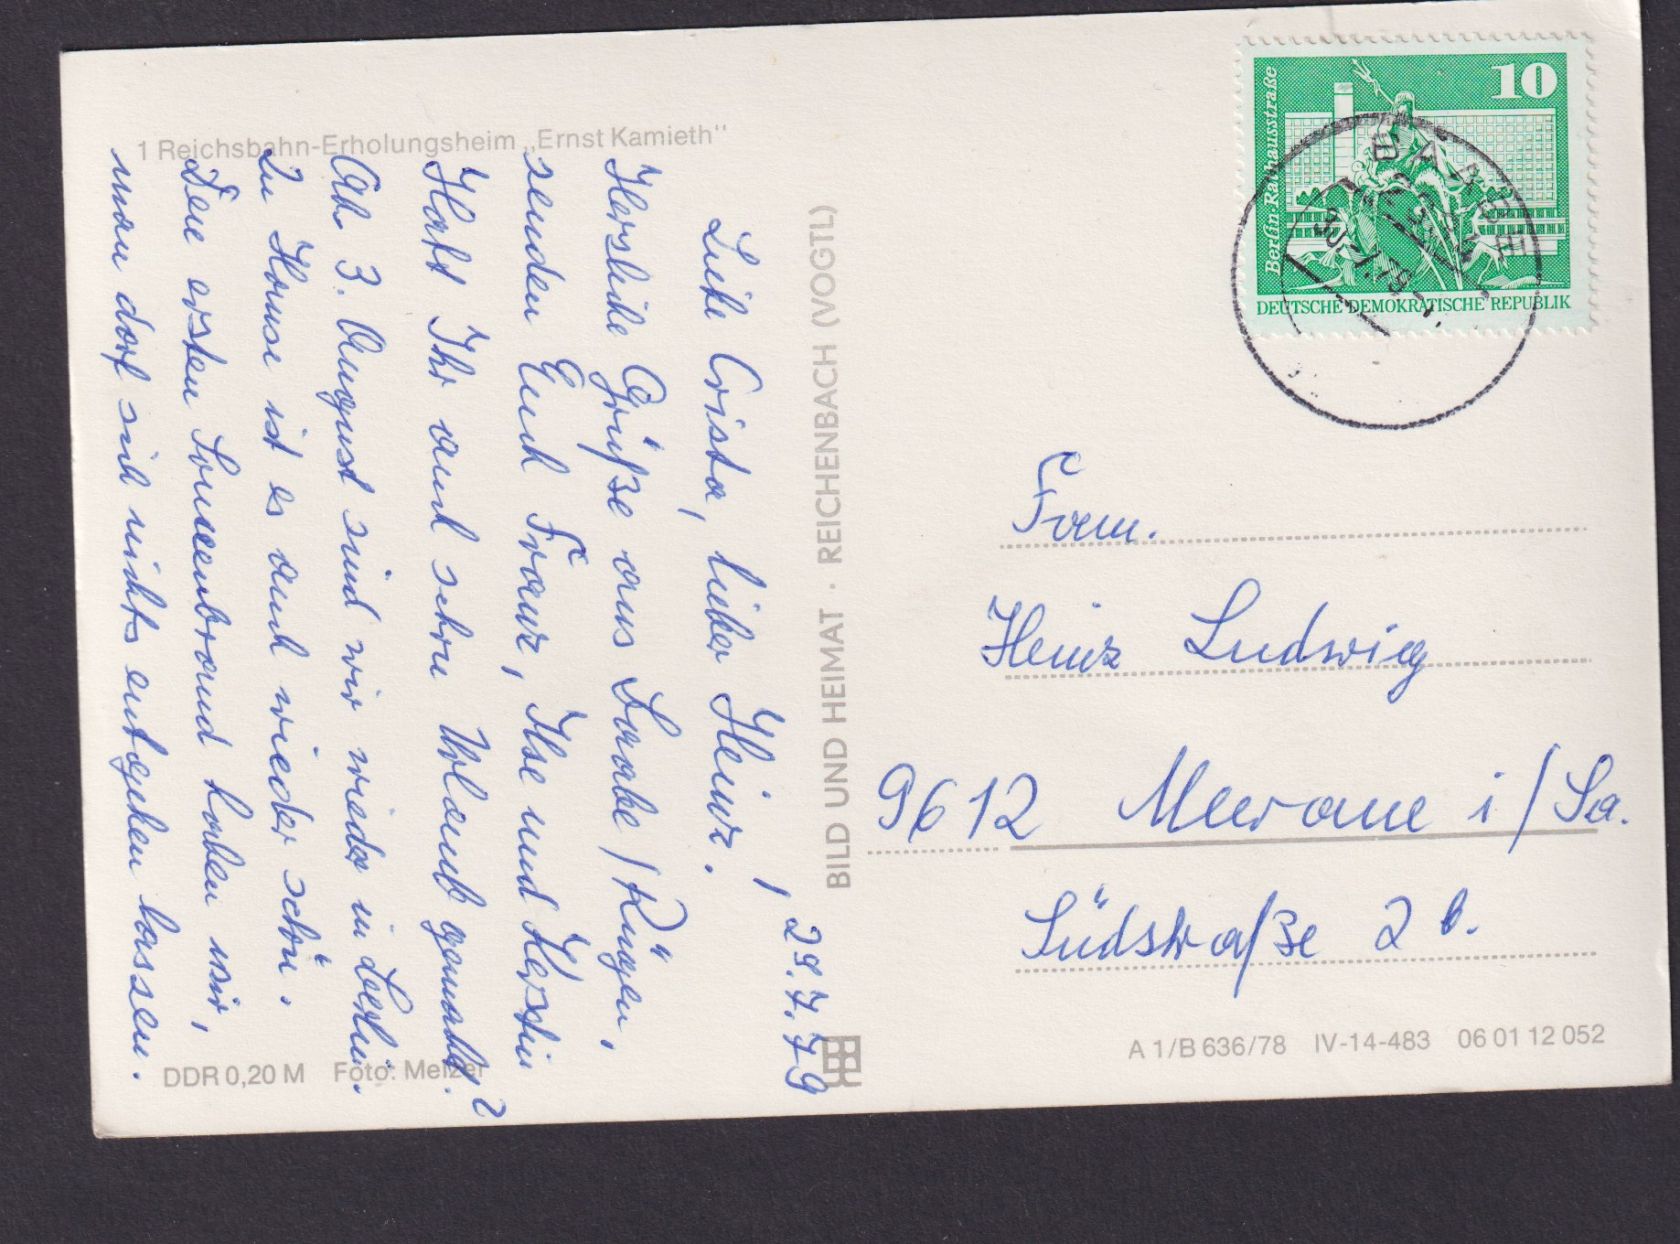 1 Reichsbahn-Erholungsheim „Ernst Kamieth"
, 29.7.79
Liebe Crista, lieber Heinz.
Herzliche Grüße aus Baabe/Rügen,
senden Euch Franz, Ilse und Kerstin
Habt Ihr auch schon Urlaub gemacht?
Ab 3. August sind wir wieder in Berlin.
Zu Hause ist es auch wieder schön.
Den ersten Sonnenbrand haben wir,
man darf sich nichts entgehen lassen.
DDR 0,20 M Foto: Melzer
BILD UND HEIMAT · REICHENBACH (VOGTL)
10
Berlin·Rathausstraße
DEUTSCHE DEMOKRATISCHE REPUBLIK
BAABE
2354
30.-7.79
Fam.
Heinz Ludwig
9612 Meerane i/Sa.
Südstraße 2 b.
A 1/B 636/78 IV-14-483 06 01 12 052